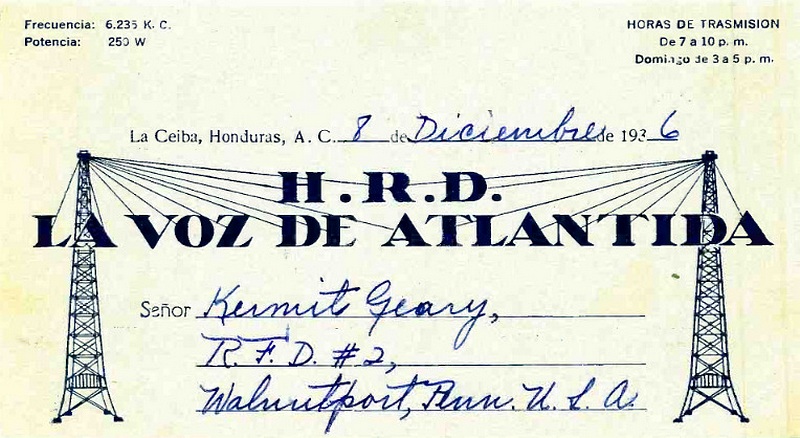 Frecuencia: 6.235 K. C.
Potencia: 250 W
HORAS DE TRASMISION
De 7 a 10 p. m.
Domingo de 3 a 5 p. m.
La Ceiba, Honduras, A. C. 8 de Diciembre de 1936
H.R.D.
LA VOZ DE ATLANTIDA
Señor Kermit Geary,
R.F.D. #2,
Walnutport, Penn. U.S.A.